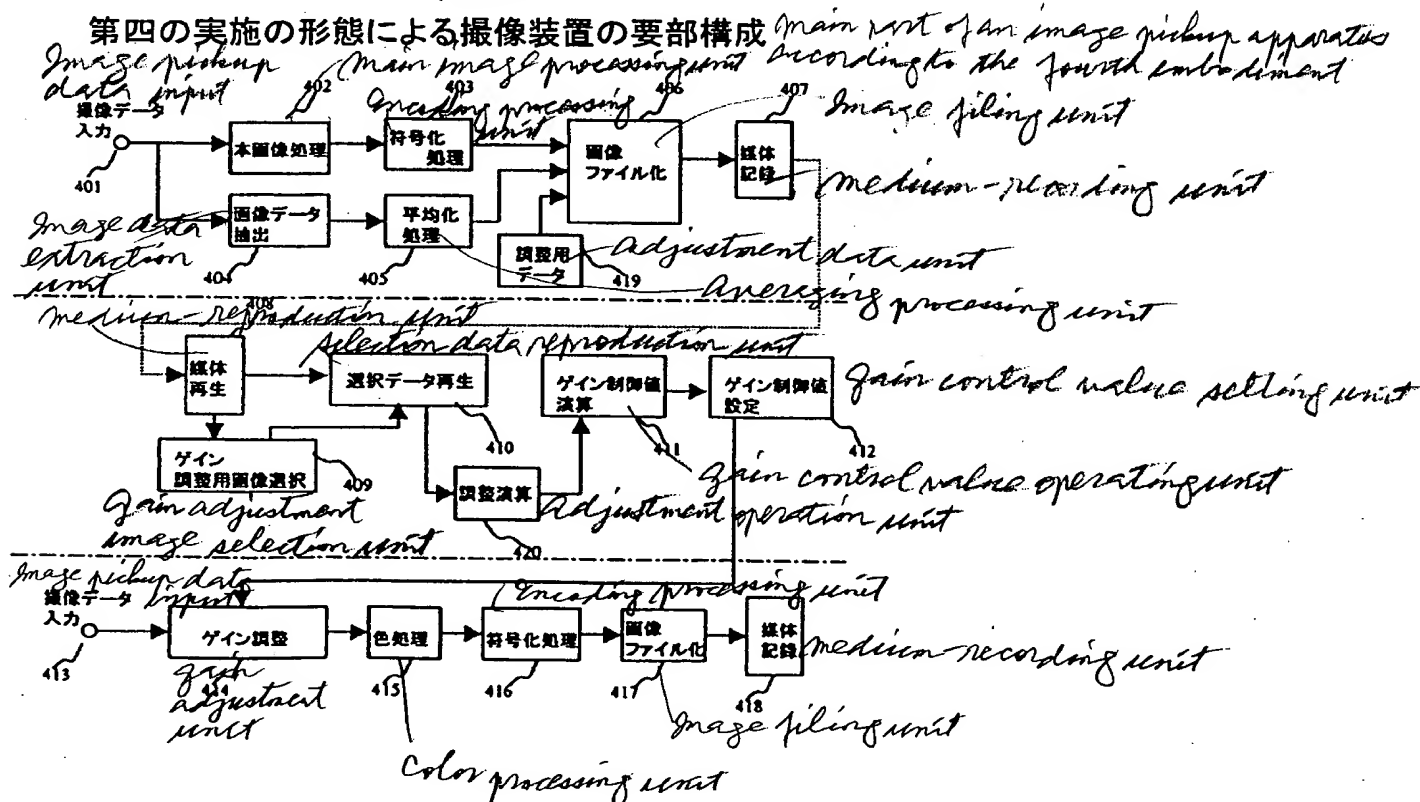 第四の実施の形態による撮像装置の要部構成
main part of an image pickup apparatus
according to the fourth embodiment
Image pickup
data input
撮像データ
入力
401
402
main image processing unit
本画像処理
403
Encoding processing
unit
符号化
処理
406
Image filing unit
画像
ファイル化
407
媒体
記録
medium-recording unit
Image data
extraction
unit
画像データ
抽出
404
平均化
処理
405
調整用
データ
419
Adjustment data unit
Averaging processing unit
408
medium-reproduction unit
媒体
再生
selection data reproduction unit
選択データ再生
410
ゲイン制御値
演算
411
ゲイン制御値
設定
412
gain control value setting unit
ゲイン
調整用画像選択
409
gain adjustment
image selection unit
調整演算
420
Adjustment operation unit
gain control value operating unit
Image pickup data
input
撮像データ
入力
413
ゲイン調整
414
gain
adjustment
unit
色処理
415
Color processing unit
Encoding processing unit
符号化処理
416
画像
ファイル化
417
Image filing unit
媒体
記録
418
medium-recording unit